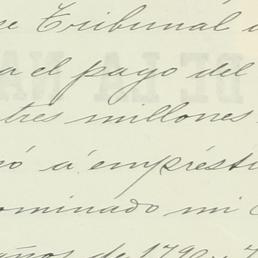 se Tribunal
a el pago del
tres millones
ó á emprésti
ominado mi
años de 1790 y